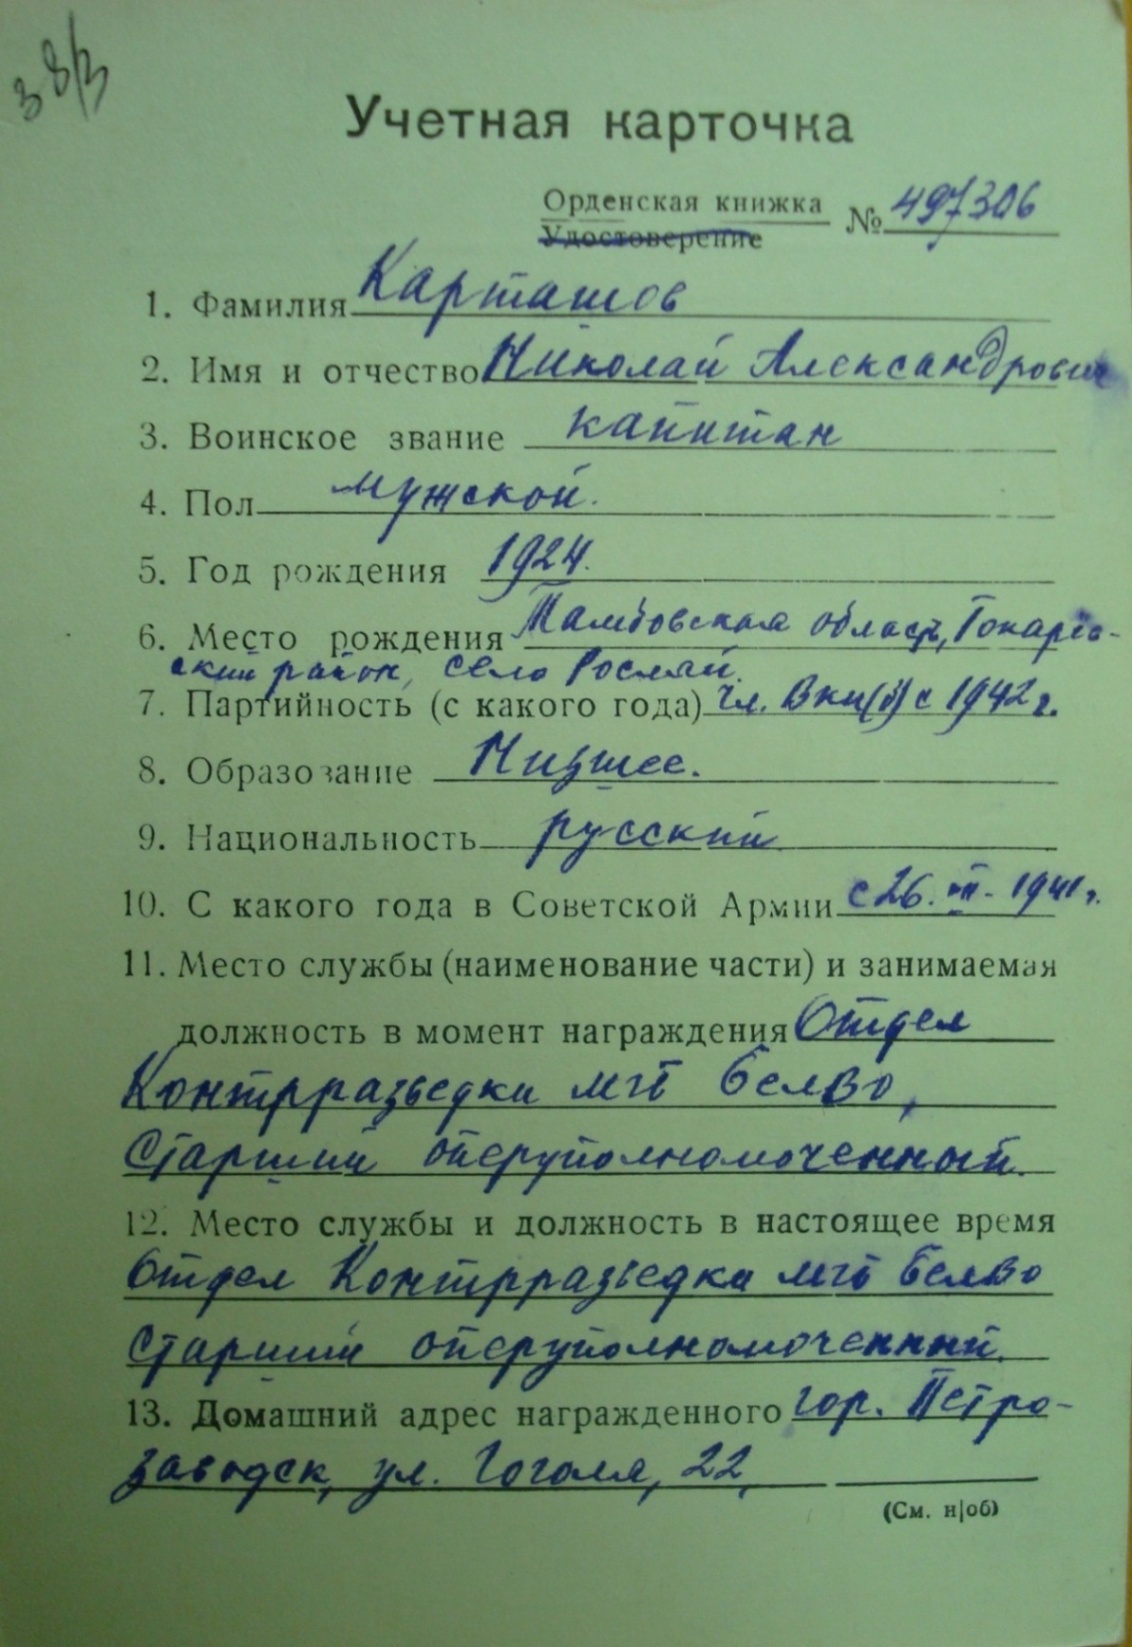 Учетная карточка
Орденская книжка
Удостоверение
№ 497306
1. Фамилия Карташов
2. Имя и отчество Николай Александрович
3. Воинское звание капитан
4. Пол мужской.
5. Год рождения 1924.
6. Место рождения Тамбовская област, Токарев-
ский район, село Росляй.
7. Партийность (с какого года) чл. ВКП(б) с 1942 г.
8. Образование Низшее.
9. Национальность русский
10. С какого года в Советской Армии с 26. III - 1941 г.
11. Место службы (наименование части) и занимаемая
должность в момент награждения Отдел
Контрразведки МГБ БелВО,
Старший оперуполномоченный.
12. Место службы и должность в настоящее время
Отдел Контрразведки МГБ БелВО
Старший оперуполномоченный.
13. Домашний адрес награжденного гор. Петро-
заводск, ул. Гоголя, 22,
(См. н|об)